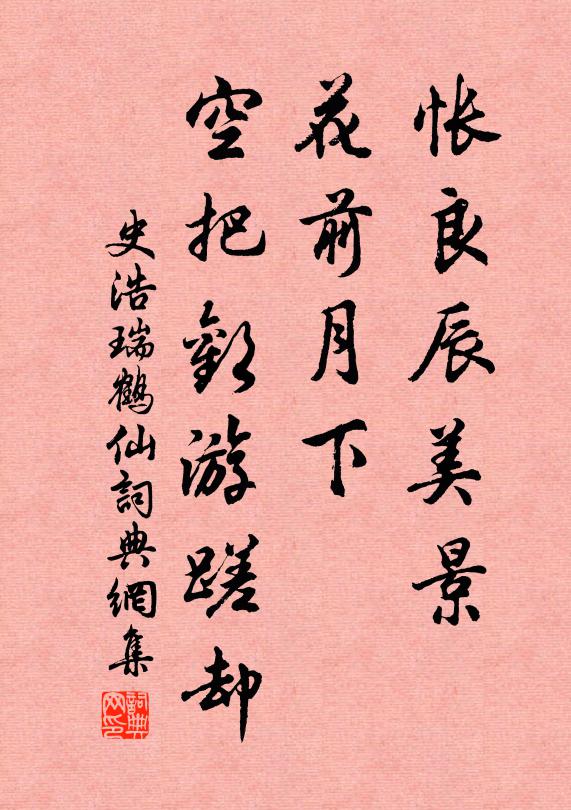 怅良辰美景
花前月下
空把歡游蹉却
史浩瑞鶴仙詞典網集
詞典网印